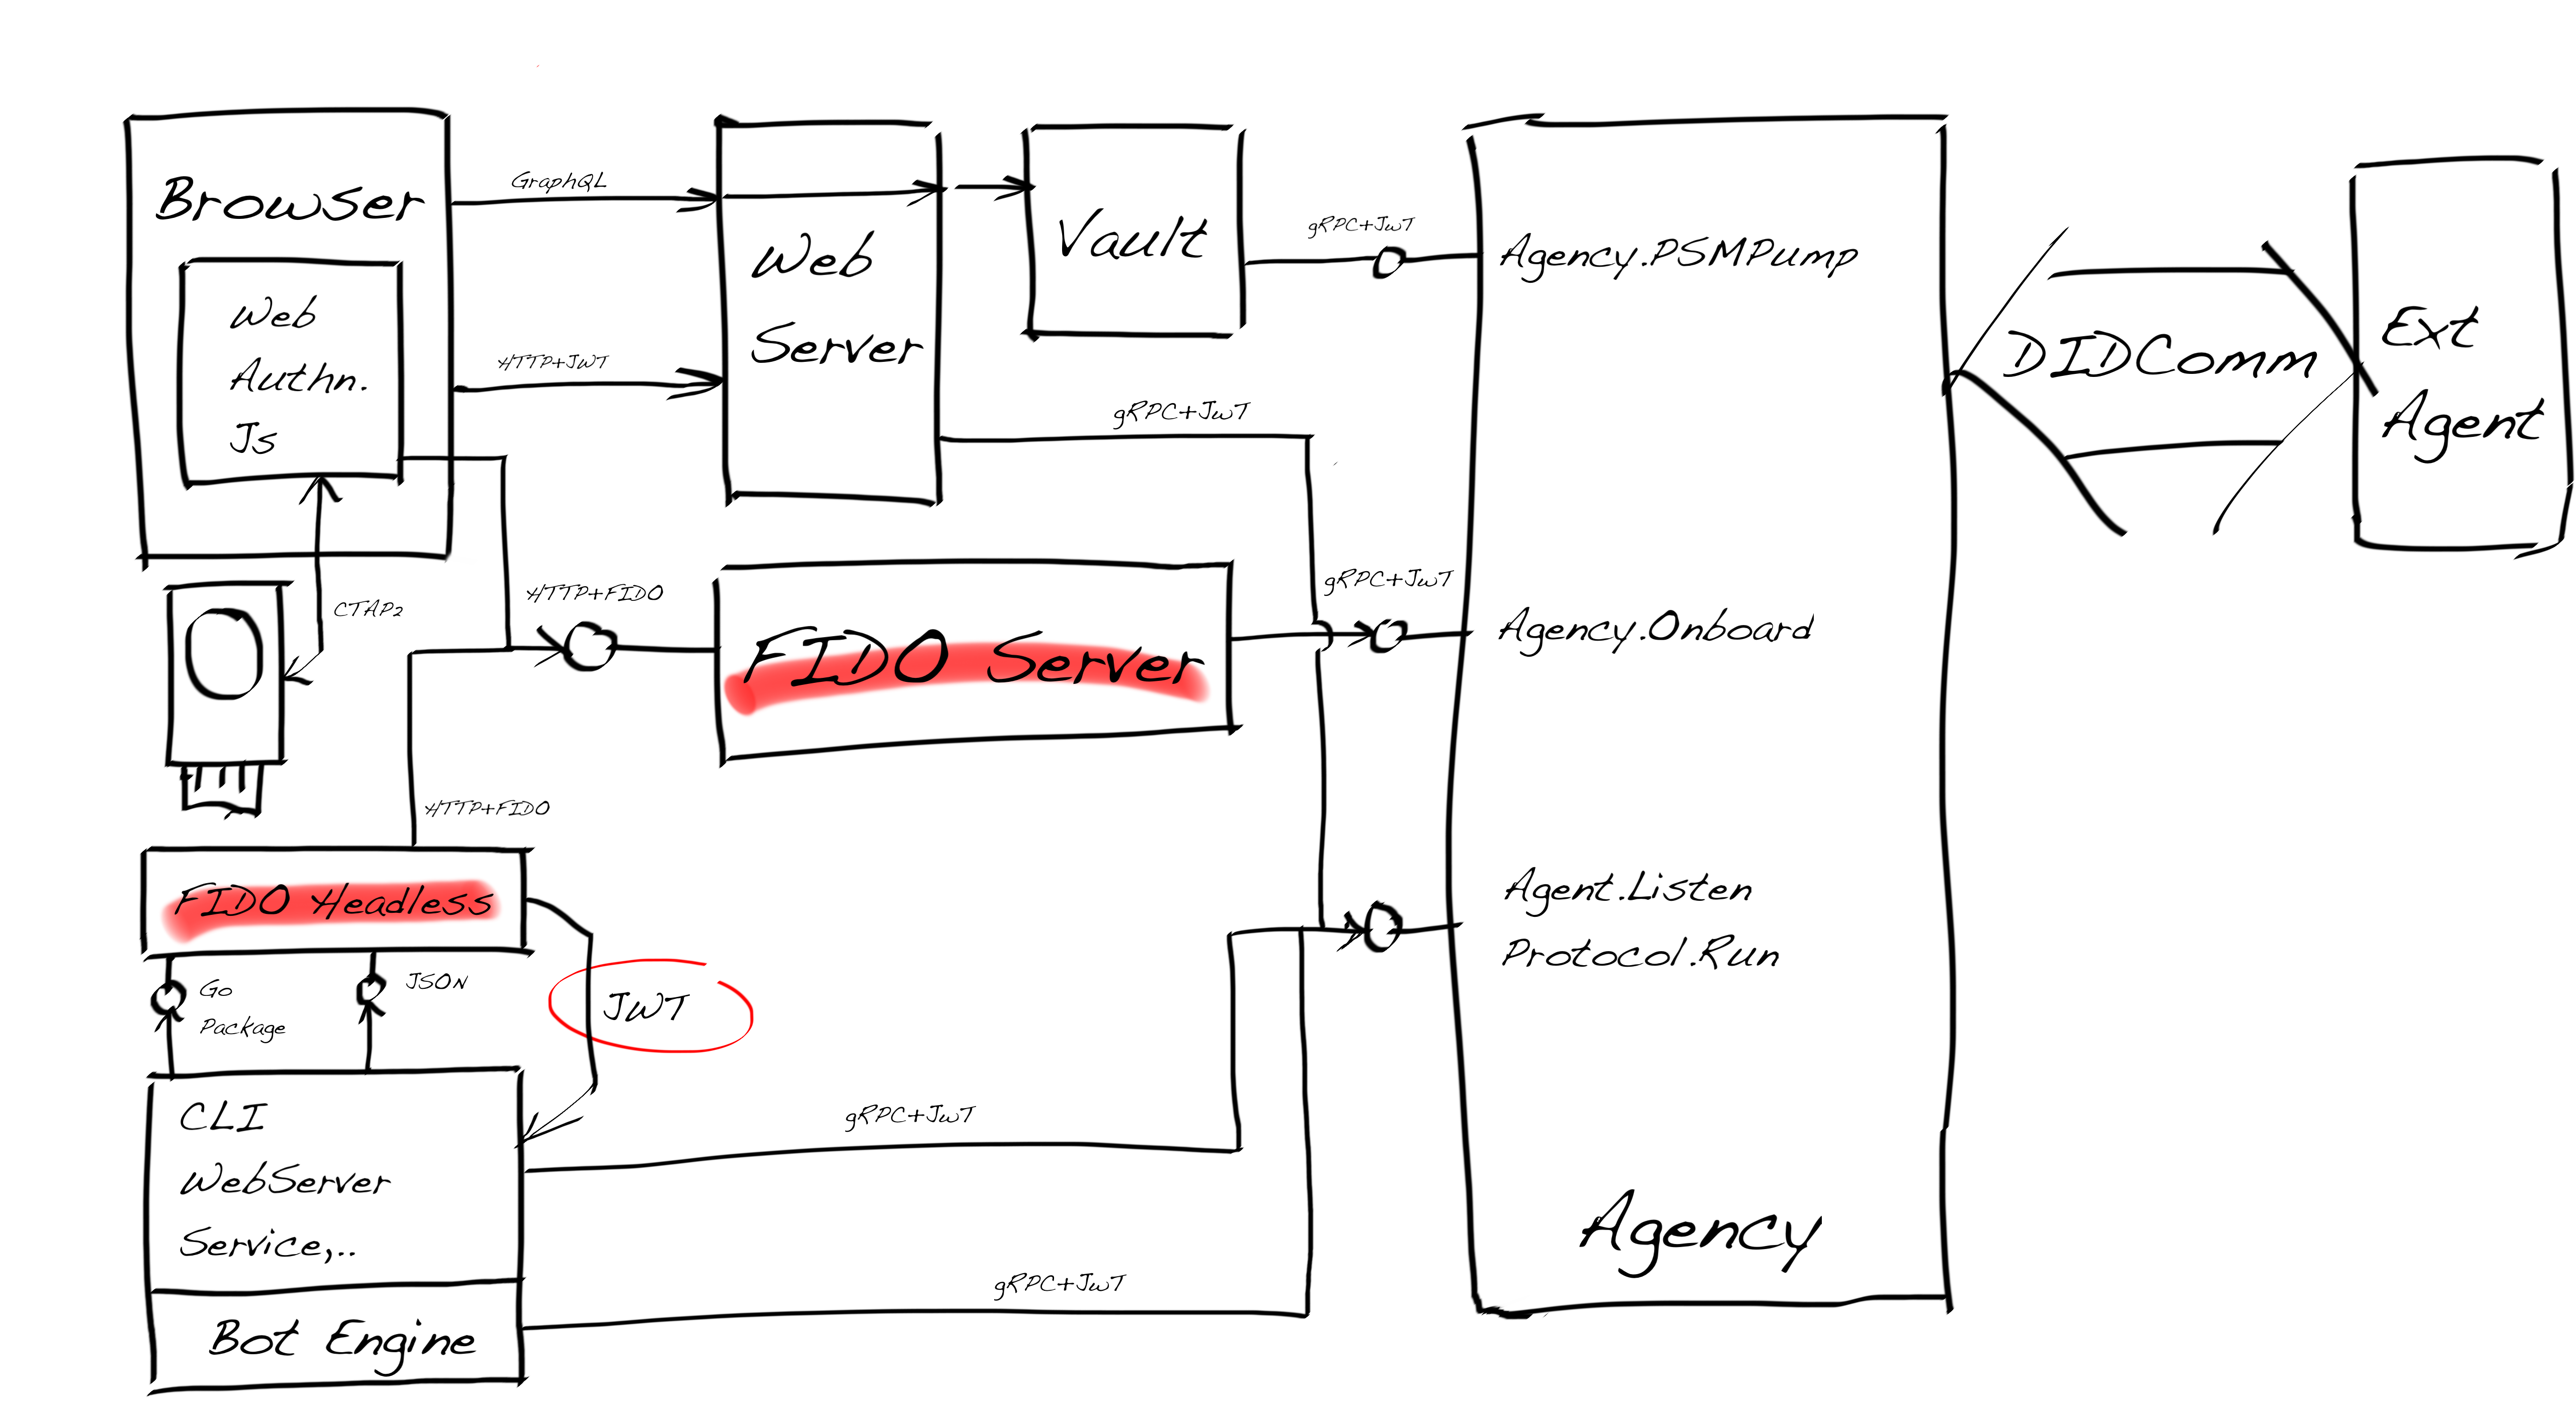 Browser
Web
Authn.
Js
GraphQL
HTTP+JWT
Web
Server
Vault
gRPC+JWT
Agency.PSMPump
DIDComm
Ext
Agent
gRPC+JWT
CTAP2
HTTP+FIDO
FIDO Server
gRPC+JWT
Agency.Onboard
HTTP+FIDO
FIDO Headless
Go
Package
JSON
JWT
Agent.Listen
Protocol.Run
CLI
WebServer
Service,..
Bot Engine
gRPC+JWT
gRPC+JWT
Agency